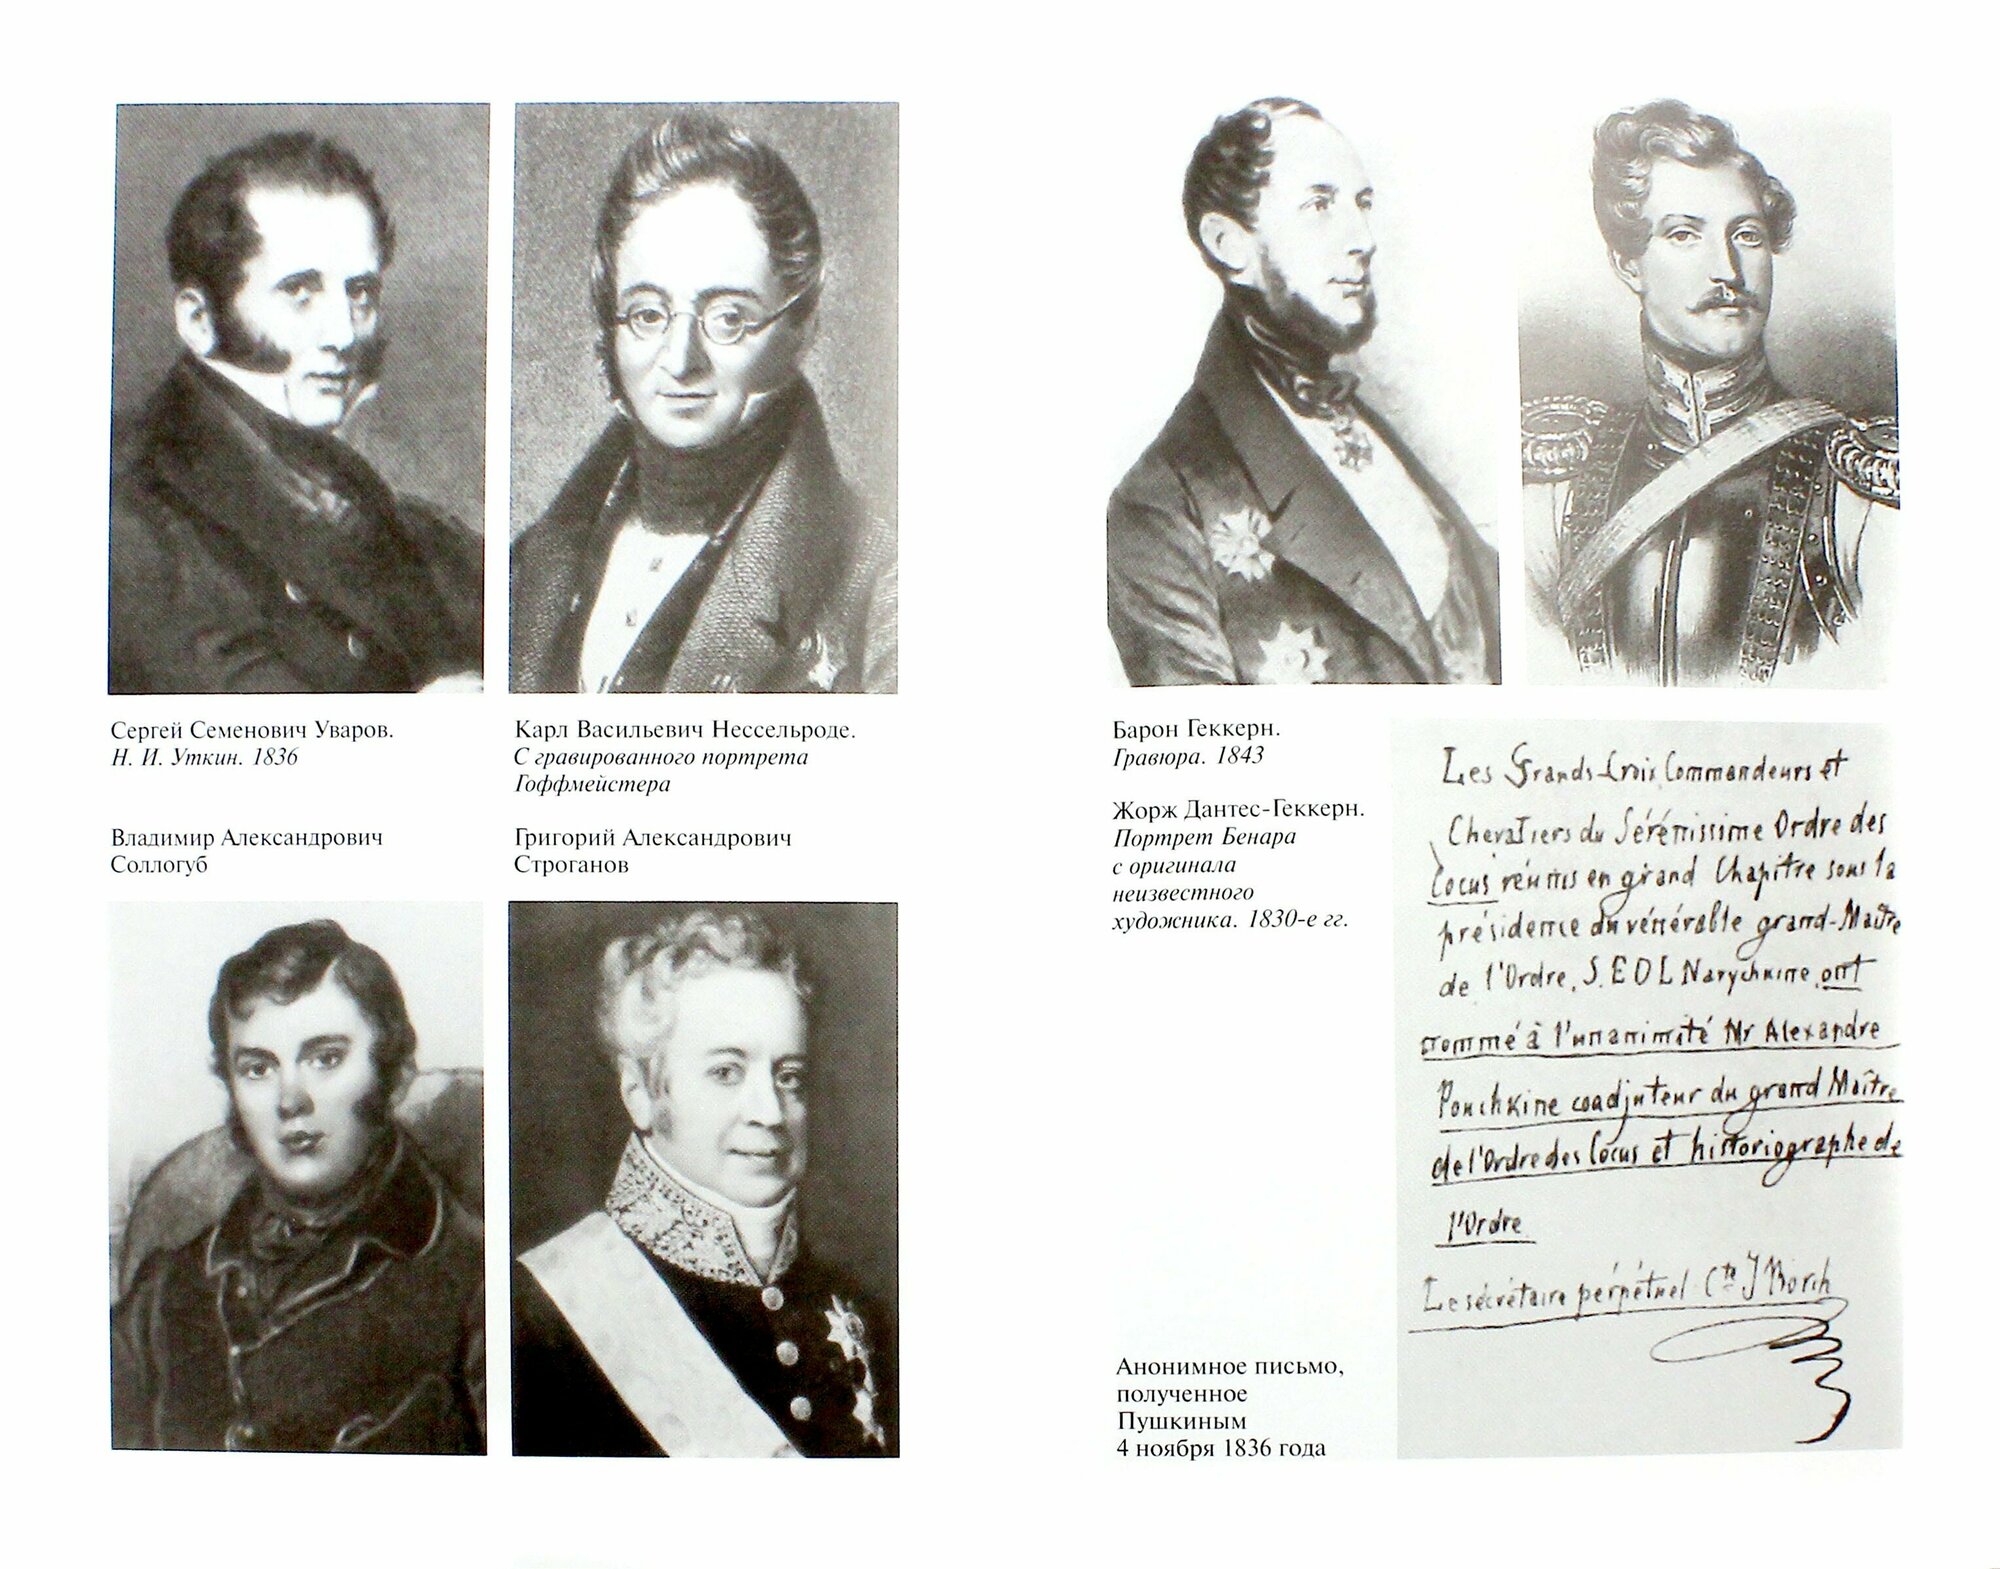 Сергей Семенович Уваров.
Н. И. Уткин. 1836
Карл Васильевич Нессельроде.
С гравированного портрета
Гоффмейстера
Владимир Александрович
Соллогуб
Григорий Александрович
Строганов
Барон Геккерн.
Гравюра. 1843
Жорж Дантес-Геккерн.
Портрет Бенара
с оригинала
неизвестного
художника. 1830-е гг.
Les Grands-Croix, Commandeurs et
Chevaliers du Sérénissime Ordre des
Cocus réunis en grand Chapitre sous la
présidence du vénérable grand-Maître
de l'Ordre, S. E D L Narychkine, ont
nommé à l'unanimité Mr Alexandre
Pouchkine coadjuteur du grand Maître
de l'Ordre des Cocus et historiographe de
l'Ordre.
Le sécrétaire perpétuel Cte J Borch
Анонимное письмо,
полученное
Пушкиным
4 ноября 1836 года